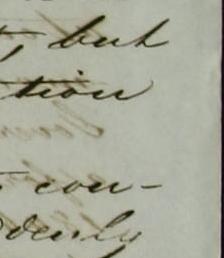 but
tion
con-
denly